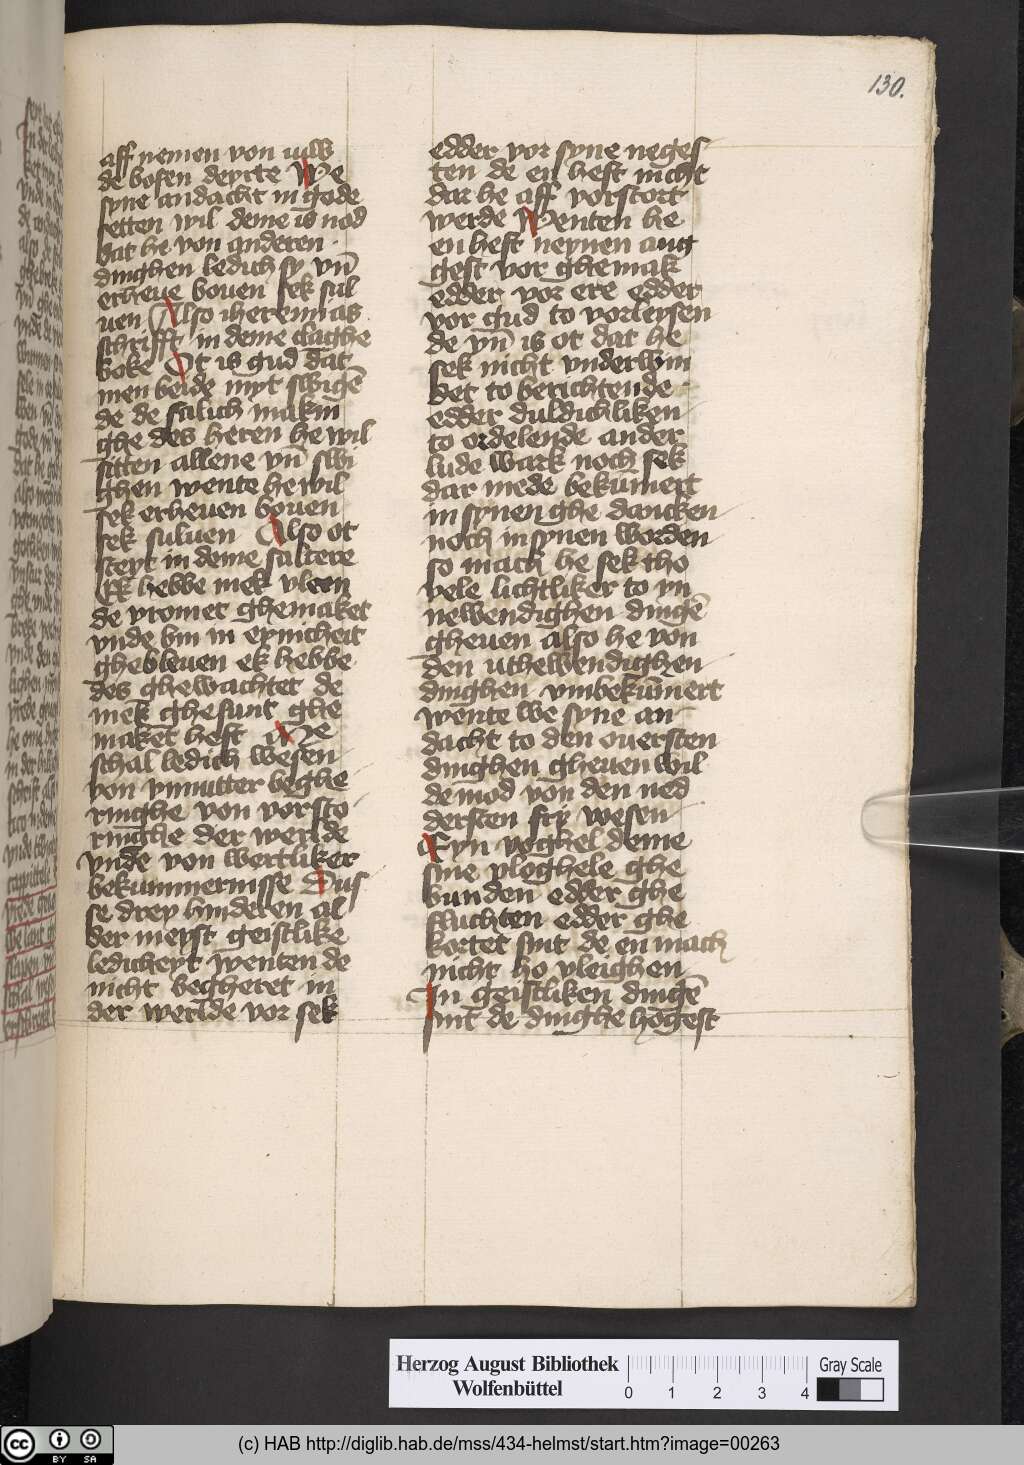 130.
aff nemen von
de bosen deyrte We
syne andacht in gode
setten wil deme is nod
dat he von anderen
dinghen ledich sy vn̄
erheue bouen sek sul
uen Also iheremias
schrifft in deme claghe
boke Ot is gud dat
men beide myt swigē
de de salich makin
ghe des heren he wil
sitten allene vn̄ swi
ghen wente he wil
sek erheuen bouen
sek suluen Also ot
steyt in deme saltere
Ek hebbe mek vleen
de vromet ghemaket
vnde bin in eynicheit
ghebleuen ek hebbe
des ghewachtet de
mek ghesunt ghe
maket heft Me
schal ledich wesen
von ynnutter beghe
ringhe von vorsto
ringhe der werlde
vnde von wertliker
bekummernisse Dus
se drey hinderen al
der meyst geistlike
ledicheyt wenten de
nicht begheret in
der werlde vor sek
edder vor syne neges
ten de en heft nicht
dar he aff vorstort
werde Wenten he
en heft neynen ang
gest vor ghemak
edder vor ere edder
vor gud to vorleysen
de vn̄ is ot dat he
sek nicht vnderwin
det to berichtende
edder duldichliken
to ordelende ander
lude wark noch sek
dar mede bekūmert
in synen ghe dancken
noch in synen worden
so mach he sek tho
vele lichtliker to in
newendighen dingē
gheuen also he von
den uthewendighen
dinghen vmbekūmert
wente we syne an
dacht to den ouersten
dinghen gheuen wil
de mod von den ned
dersten fry wesen
Eyn voghel deme
sine vloghele ghe
bunden edder ghe
fluchten edder ghe
kortet sint de en mach
nicht ho vleighen
In geistliken dingē
sint de dinghe hogest
Herzog August Bibliothek
Wolfenbüttel
0 1 2 3 4
Gray Scale
cc BY SA
(c) HAB http://diglib.hab.de/mss/434-helmst/start.htm?image=00263